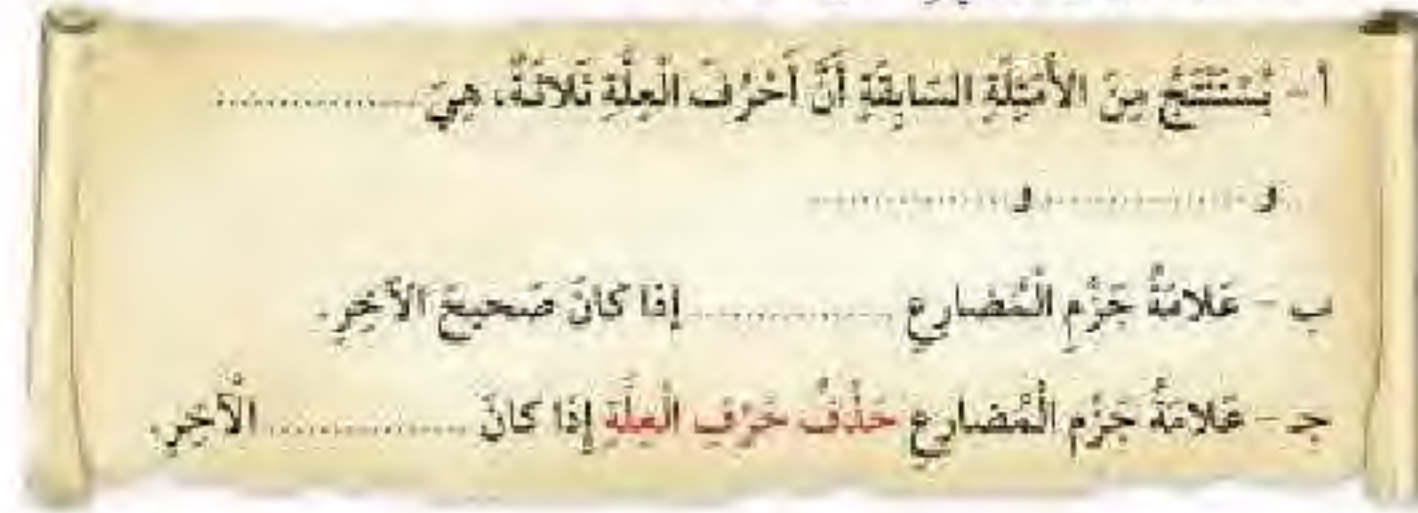 أ - يُسْتَنْتَجُ مِنَ الأَمْثِلَةِ السَّابِقَةِ أَنَّ أَحْرُفَ الْعِلَّةِ ثَلاثَةٌ، هِيَ ....................
.. وَ .................... وَ ....................
ب - عَلامَةُ جَزْمِ الْمُضارِعِ .................... إِذا كانَ صَحيحَ الآخِرِ.
جـ - عَلامَةُ جَزْمِ الْمُضارِعِ حَذْفُ حَرْفِ الْعِلَّةِ إِذا كانَ .................... الْآخِرِ.